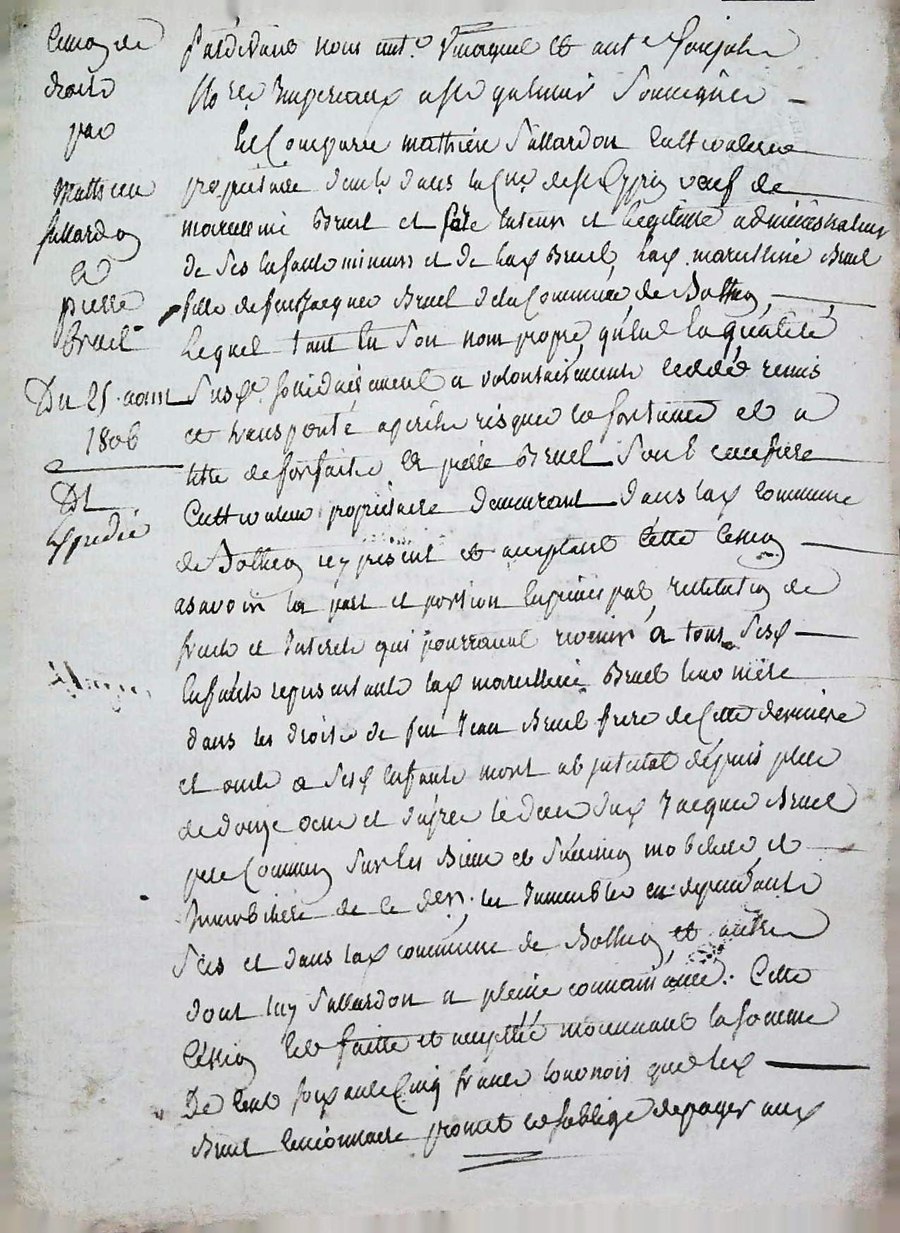 Cession de
droits
par
Mathieu
fallardon
et
pierre
Bruel
Du 25. aoust
1806
Dt
Expedié
Pardevant nous ant.e et ant.e
No.res Imperiaux
Est Comparu mathieu fallardon Cultivateur
propriétaire dans la Cne. de veuf de
marcelline Bruel et père tuteur et légitime administrateur
de ses Enfants mineurs et de lad. Bruel, lad. marcelline Bruel
fille de feu Jacques Bruel de la Commune de Bothéon,
Lequel tant En Son nom propre qu'en la qualité
Susd. solidairement a volontairement ceddé remis
et transporté a perils risques et fortunes et a
titre de forfait a pierre Bruel Son beaufrere
Cultivateur propriétaire demeurant dans lad. Commune
de Bothéon icy présent et acceptant Cette Cession
asavoir la part et portion En principal, restitution de
fruits et Interets qui pourraient revenir a tous Sesd.
Enfants representants lad. marcelline Bruel leur mère
dans les droits de feu Jean Bruel frere de Cette derniere
et oncle a Sesd. Enfants mort ab intestat depuis plus
de douze ans et après le deces dud. Jacques Bruel
père Commun Sur les Biens et Succession mobiliere et
Immobiliere de ce der. les Immeubles en dependants
Scis et dans lad. commune de Bothéon et autres
dont luy fallardon a pleine connaissance. Cette
Cession Est faitte et acceptée moyennant la somme
De Cent soixante Cinq francs tournois que led.
Bruel Cessionnaire promet et s'oblige de payer aux